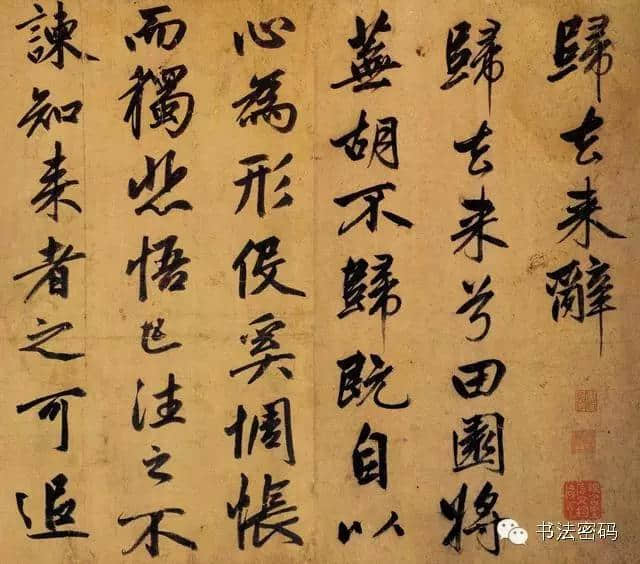 歸去来辭
歸去来兮田園將
蕪胡不歸既自以
心為形役奚惆悵
而獨悲悟已往之不
諫知来者之可追
书法密码